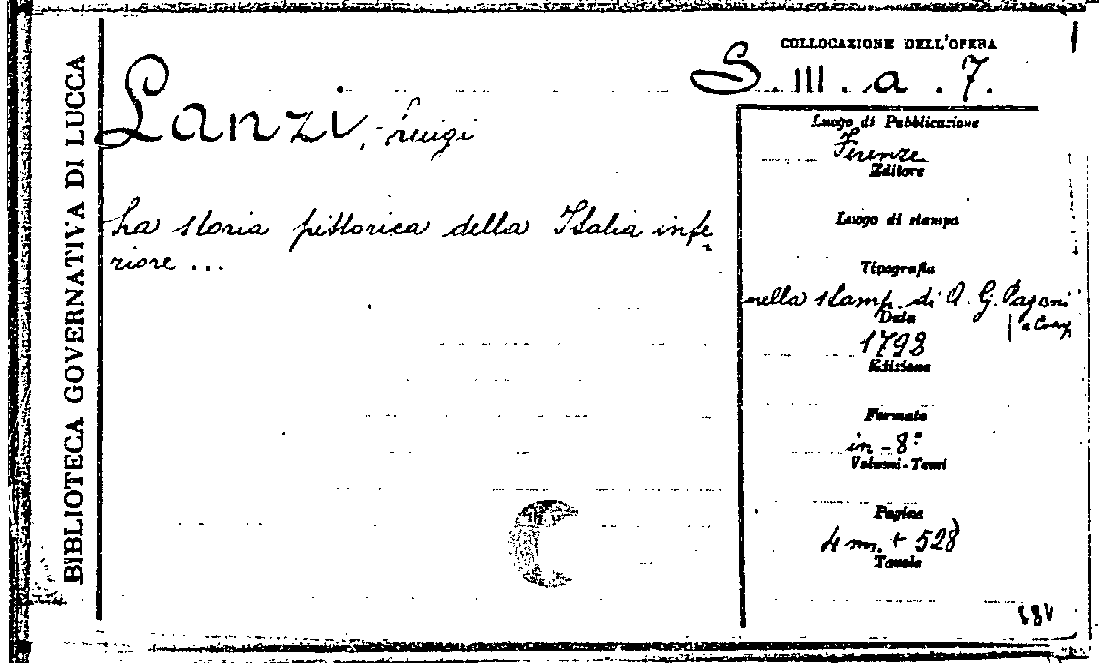 BIBLIOTECA GOVERNATIVA DI LUCCA
COLLOCAZIONE DELL'OPERA
S. III. a. 7.
Lanzi, Luigi
La storia pittorica della Italia infe
riore ...
Luogo di Pubblicazione
Firenze
Editore
Luogo di stampa
Tipografia
nella stamp. di A. G. Pagani
e Comp
Data
1798
Edizione
Formato
in-8°
Volumi-Tomi
Pagine
4 nn. + 528
Tavole